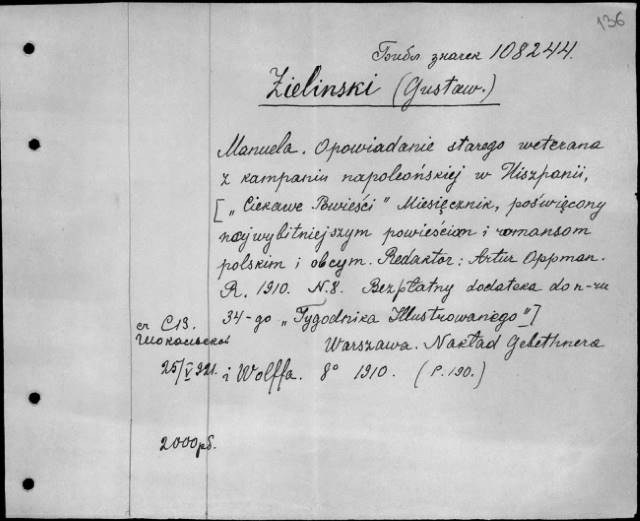 136
знаrек 108244.
Zielinski (Gustaw.)
Manuela. Opowiadanie starego weterana
z kampanii napoleońskiej w Hiszpanii,
[„Ciekawe Powieści" Miesięcznik, poświęcony
najwybitniejszym powieściom i romansom
polskim i obcym. Redaktor: Artur Oppman.
R. 1910. N.8. Bezpłatny dodatek do n-ru
34-go „Tygodnika Illustrowanego"]
Warszawa. Nakład Gebethnera
i Wolffa. 8° 1910. (P. 190.)
ст С13.
25/V 921.
2000рб.